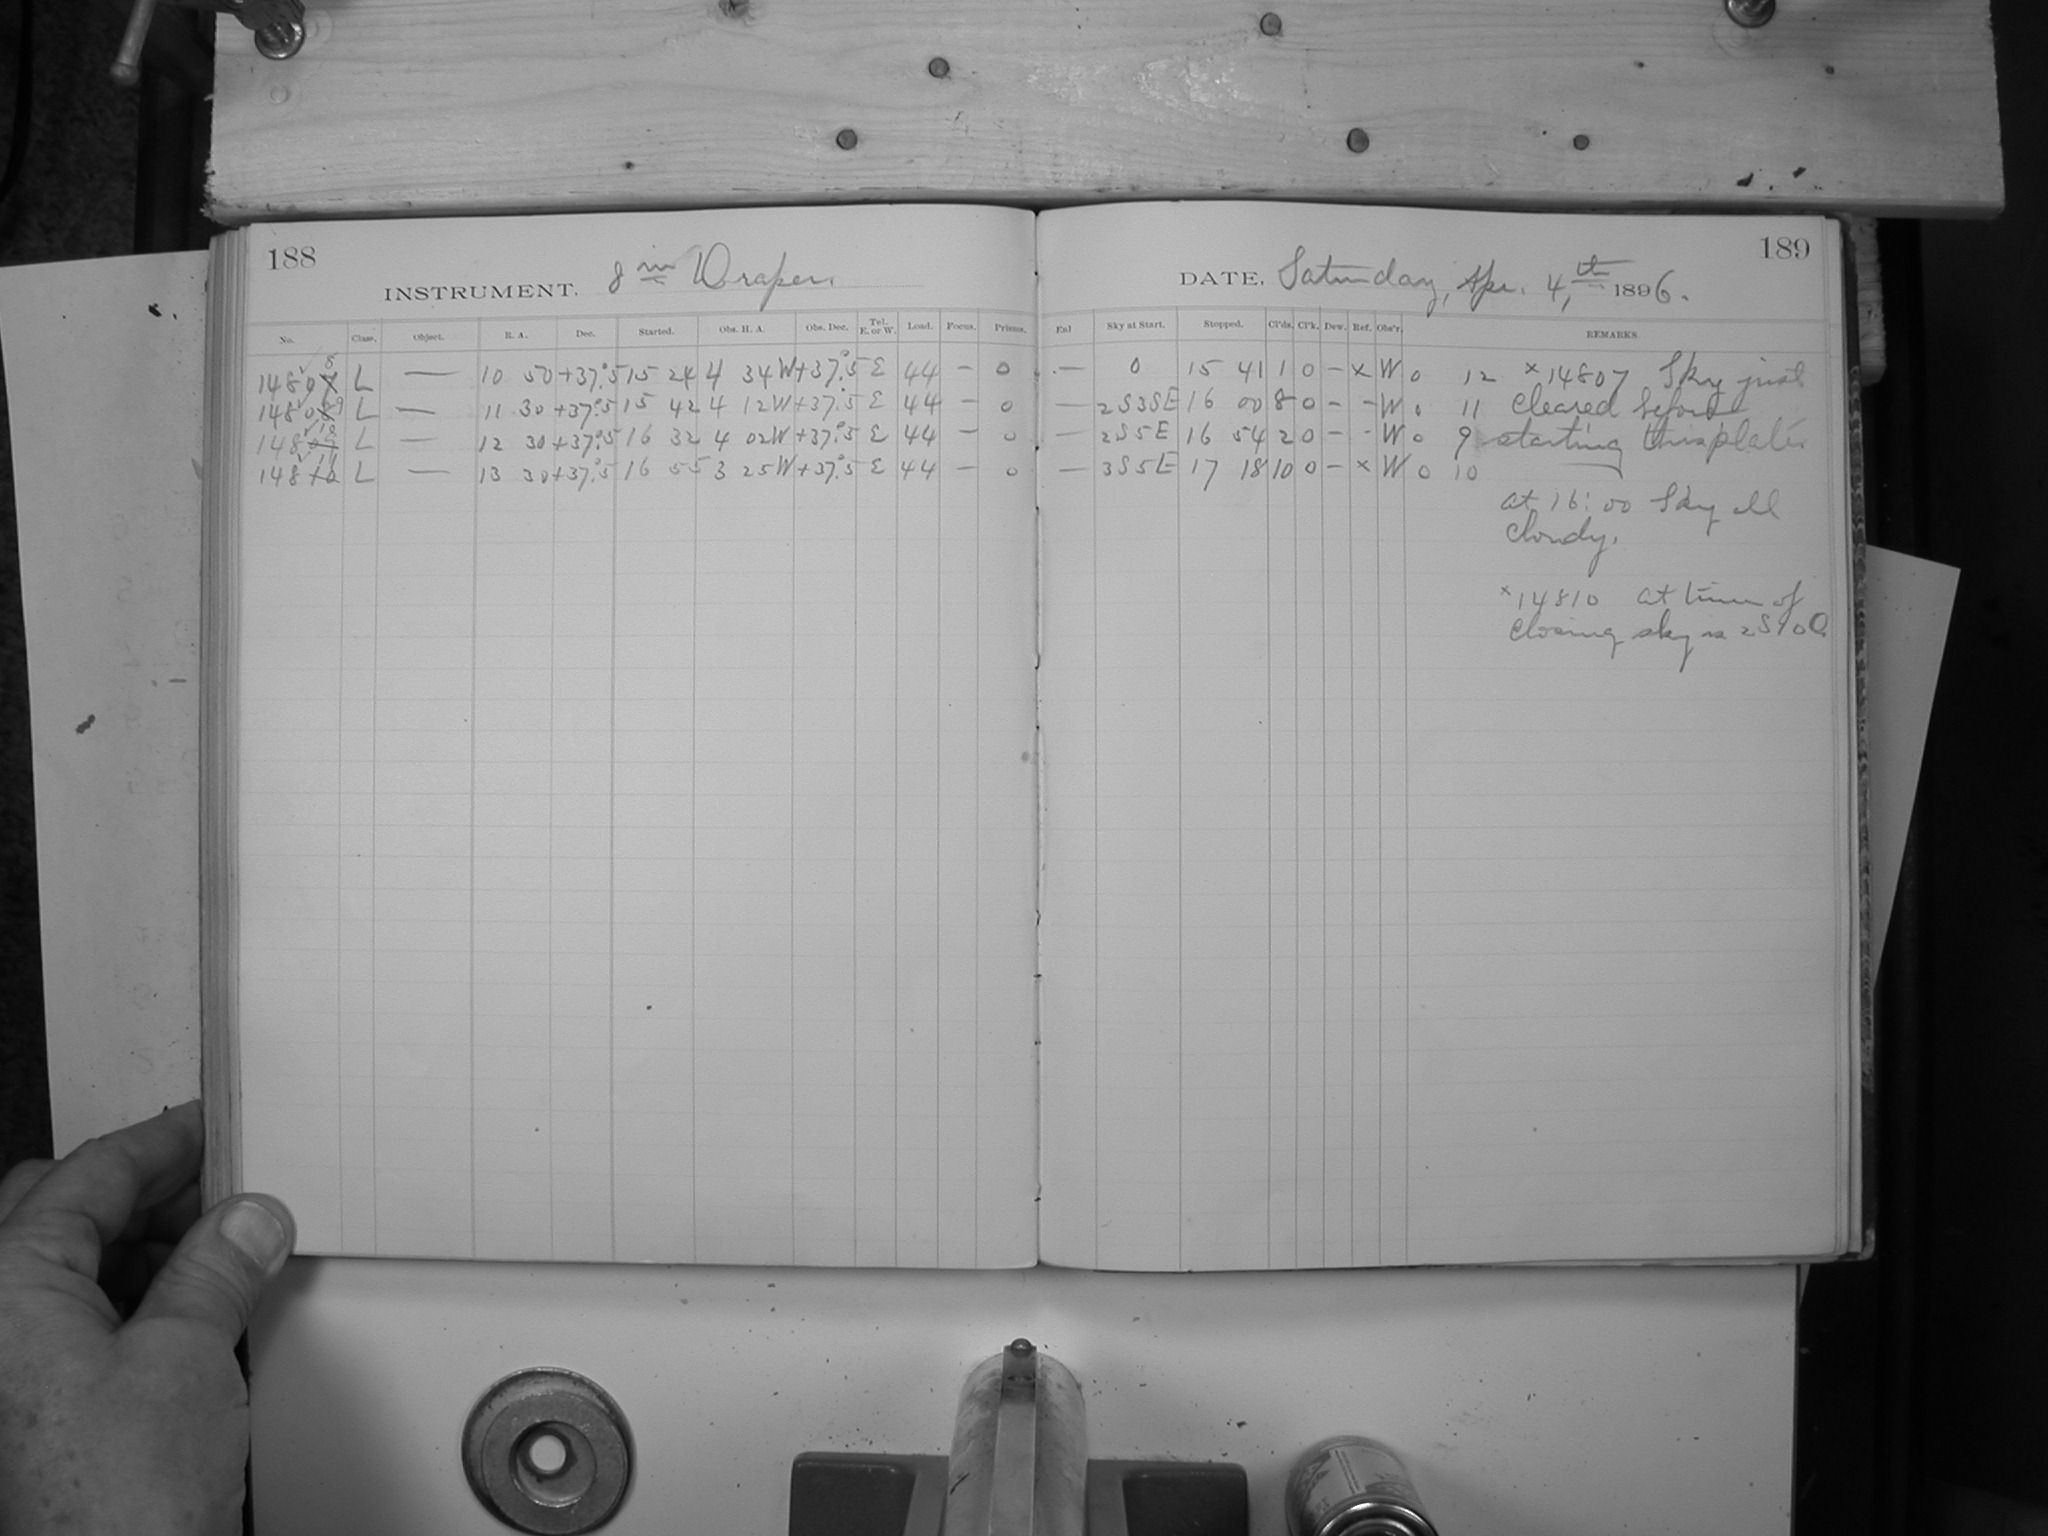 188
INSTRUMENT. 8 in Draper.
No. Class. Object. R. A. Dec. Started. Obs. H. A. Obs. Dec. Tel. E. or W. Load. Focus. Prisms.
14807 8 L — 10 50 +37°.5 15 24 4 34W +37°.5 E 44 — 0
14808 9 L — 11 30 +37°.5 15 42 4 12W +37°.5 E 44 — 0
14809 10 L — 12 30 +37°.5 16 32 4 02W +37°.5 E 44 — 0
14810 11 L — 13 30 +37°.5 16 55 3 25W +37°.5 E 44 — 0
189
DATE, Saturday, Apr. 4,th 1896.
Enl Sky at Start. Stopped. Cl'ds. Cl'k. Dew. Ref. Obs'r. REMARKS.
— 0 15 41 1 0 – x W 0 12 x14807 Sky just
— 2S3SE 16 00 8 0 – – W 0 11 cleared before
— 2S5E 16 54 2 0 – – W 0 9 starting this plate.
— 3S5E 17 18 10 0 – x W 0 10
at 16:00 Sky all
cloudy.
x14810 at time of
closing sky is 2S10